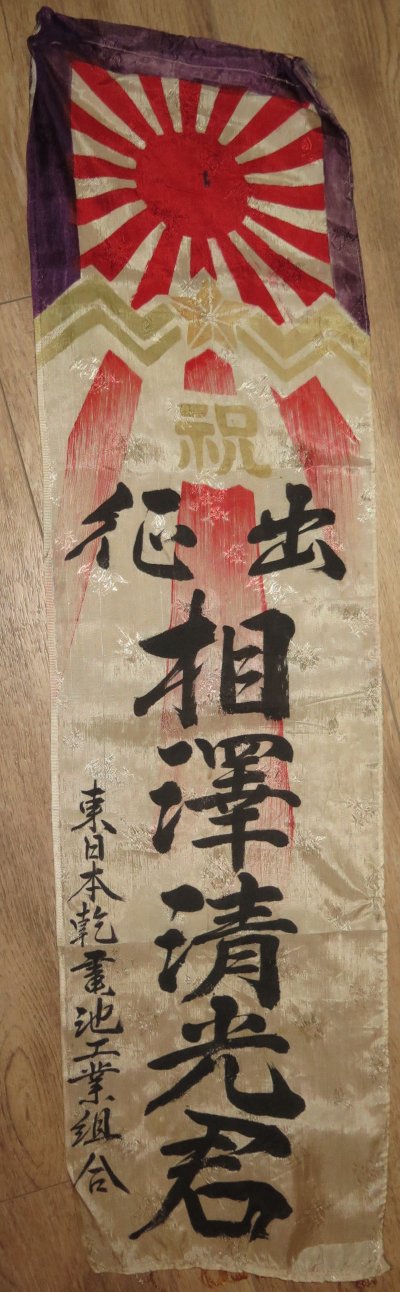 祝
出征
相澤清光君
東日本乾電池工業組合